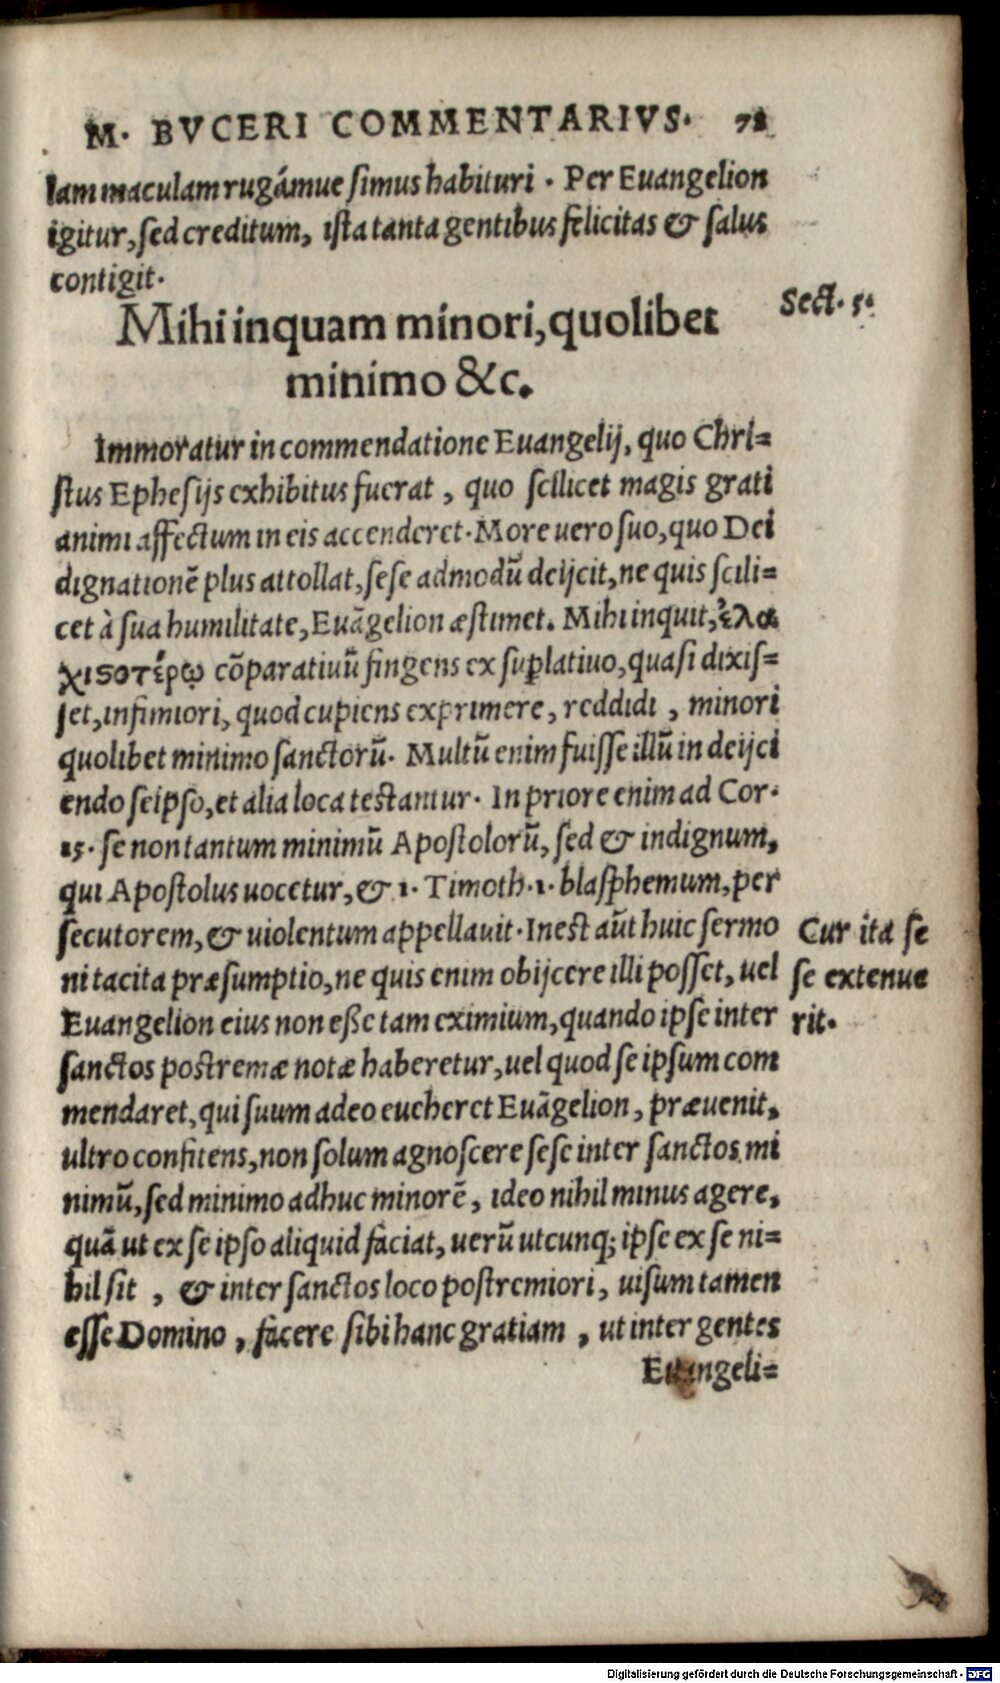 M. BVCERI COMMENTARIVS. 78
lam maculam rugámue simus habituri. Per Euangelion
igitur, sed creditum, ista tanta gentibus felicitas & salus
contigit.
Sect. 5.
Mihi inquam minori, quolibet
minimo &c.
Immoratur in commendatione Euangelij, quo Chri=
stus Ephesijs exhibitus fuerat, quo scilicet magis grati
animi affectum in eis accenderet. More uero suo, quo Dei
dignationē plus attollat, sese admodū deijcit, ne quis scili=
cet à sua humilitate, Euāgelion æstimet. Mihi inquit, ἐλα
χιϛοτέρῳ cōparatiuū fingens ex superlatiuo, quasi dixis=
set, infimiori, quod cupiens exprimere, reddidi, minori
quolibet minimo sanctorū. Multū enim fuisse illū in deijci
endo seipso, et alia loca testantur. In priore enim ad Cor.
15. se non tantum minimū Apostolorū, sed & indignum,
qui Apostolus uocetur, & 1. Timoth. 1. blasphemum, per
secutorem, & uiolentum appellauit. Inest aūt huic sermo
ni tacita præsumptio, ne quis enim obijcere illi posset, uel
Euangelion eius non eße tam eximium, quando ipse inter
sanctos postremæ notæ haberetur, uel quod se ipsum com
mendaret, qui suum adeo eueheret Euāgelion, præuenit,
ultro confitens, non solum agnoscere sese inter sanctos mi
nimū, sed minimo adhuc minorē, ideo nihil minus agere,
quā ut ex se ipso aliquid faciat, uerū utcunq; ipse ex se ni=
hil sit, & inter sanctos loco postremiori, uisum tamen
esse Domino, facere sibi hanc gratiam, ut inter gentes
Euangeli=
Cur ita se
se extenue
rit.
Digitalisierung gefördert durch die Deutsche Forschungsgemeinschaft - DFG